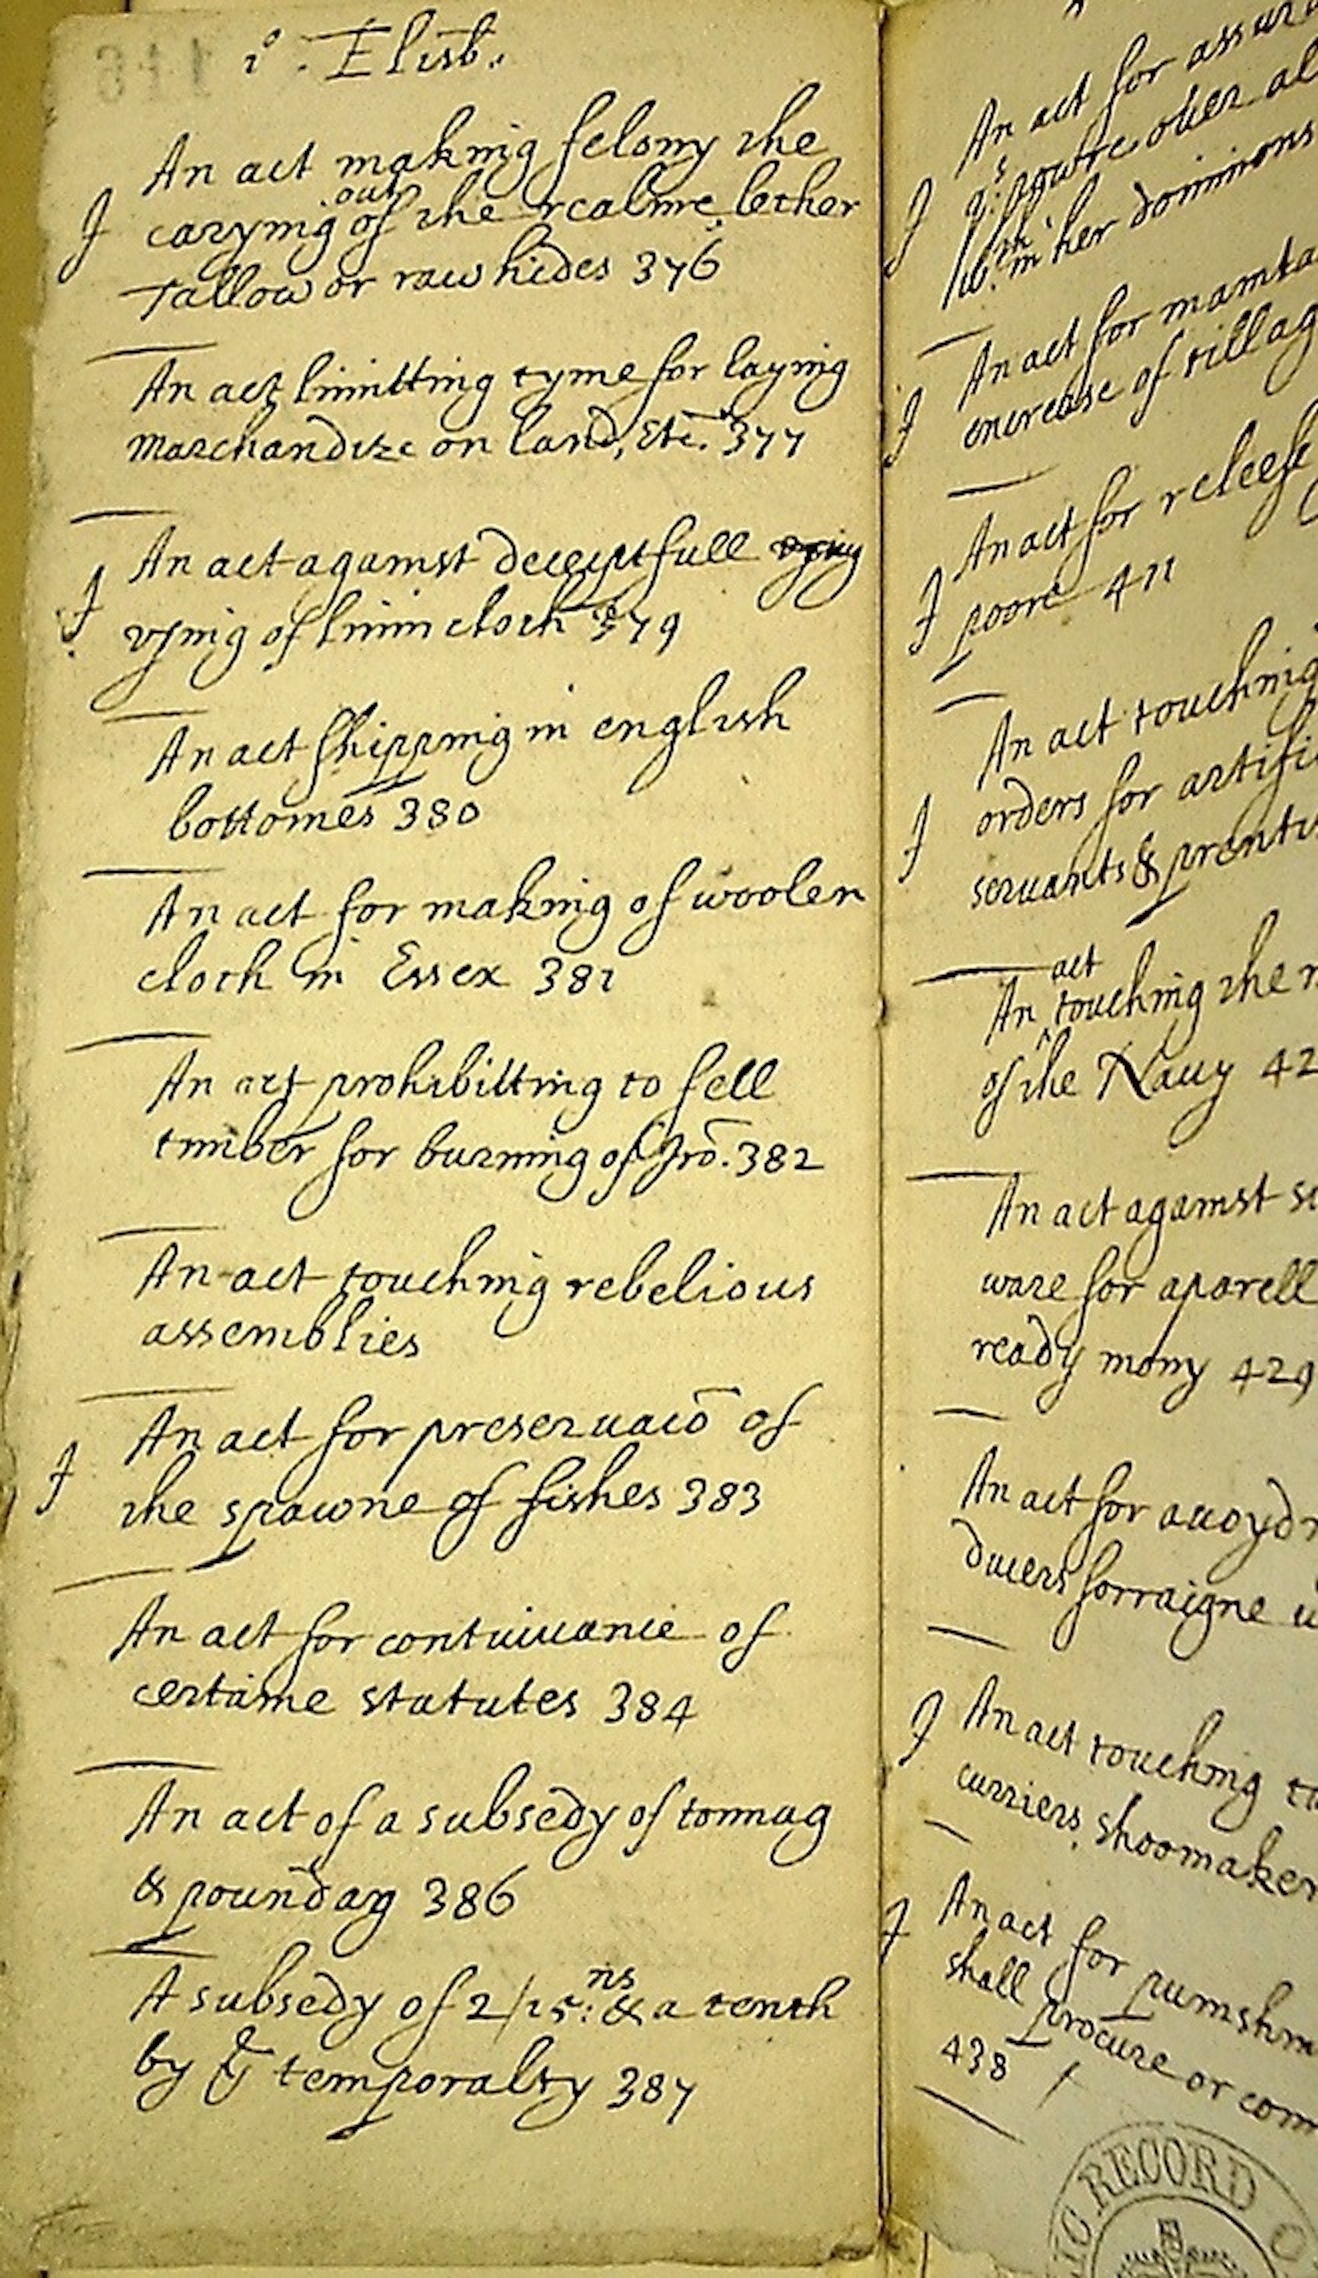 1º. Elisb.
An act making felony the
J carying out of the realme lether
tallow or raw hides 376
An act limitting tyme for laying
marchandize on land, Etc. 377
An act against deceiptfull
J vsing of linin cloth 379
An act shipping in english
bottomes 380
An act for making of woolen
cloth in Essex 381
An act prohibitting to fell
timber for burning of Irō. 382
An act touching rebelious
assemblies
An act for preseruacō of
J the spawne of fishes 383
An act for continuance of
certaine statutes 384
An act of a subsedy of tonnag
& poundag 386
A subsedy of 2/15:ns & a tenth
by ye temporalty 387
An act for assura
J q:s powre ouer al
wth:in her dominions
An act for mainta
J encrease of tillag
An act for releefe
J poore 411
An act touching
J orders for artifi
seruants & prentis
An act touching the
of the Nauy 42
An act against se
ware for aparell
ready mony 429
An act for auoydi
diuers forraigne w
J An act touching ta
curriers, shoomaker
J An act for punishm
shall procure or com
438 /
IC RECORD O